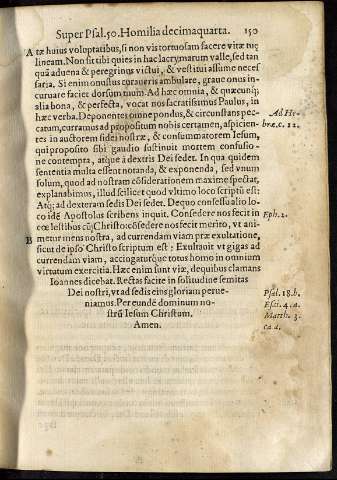 Super Psal.50. Homilia decimaquarta. 150
A tæ huius voluptatibus, si non vis tortuosam facere vitæ tuę
lineam. Non sit tibi quies in hac lacrymarum valle, sed tan
quã aduena & peregrinus victui, & vestitui assume neces
saria. Si enim onustus curaueris ambulare, graue onus in-
curuare faciet dorsum tuum. Ad hæc omnia, & quæcunq;
alia bona, & perfecta, vocat nos sacratissimus Paulus, in
hæc verba. Deponentes omne pondus, & circunstans pec-
catum, curramus ad propositum nobis certamen, aspicien-
tes in auctorem fidei nostræ, & consummatorem Iesum,
qui proposito sibi gaudio sustinuit mortem confusio-
ne contempta, atque à dextris Dei sedet. In qua quidem
sententia multa essent notanda, & exponenda, sed vnum
solum, quod ad nostram cõsiderationem maxime spectat,
explanabimus, illud scilicet quod vltimo loco scriptũ est:
Atq; ad dexteram sedis Dei sedet. Dequo confessu alio lo-
co idẽ Apostolus scribens inquit. Consedere nos fecit in
cœlestibus cũ Christo: cõsedere nos fecit merito, vt ani-
B metur mens nostra, ad currendam viam præ exultatione,
sicut de ipso Christo scriptum est: Exultauit vt gigas ad
currendam viam, accingaturque totus homo in omnium
virtutum exercitia. Hæc enim sunt viæ, de quibus clamans
Ioannes dicebat. Rectas facite in solitudine semitas
Dei nostri, vt ad sedis eius gloriam perue-
niamus. Per eundẽ dominum no-
strũ Iesum Christum.
Amen.
Ad He-
bræ. c. 12.
Eph. 2.
Psal. 18. b.
Esai. 4. a.
Matth. 3.
ca. a.